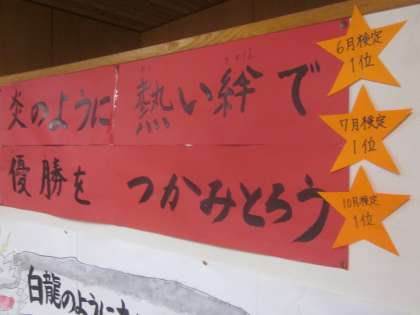 炎のように熱い絆で
優勝を つかみとろう
6月検定
1位
7月検定
1位
10月検定
1位
白龍のように